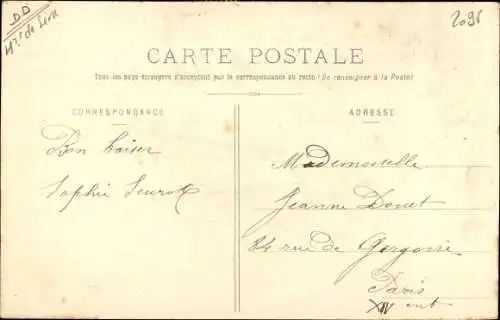 DD
2096
CARTE POSTALE
Tous les pays étrangers n'acceptent pas la correspondance au recto (Se renseigner à la Poste)
CORRESPONDANCE
ADRESSE
Bon baiser
Sophie
Mademoiselle
Jeanne Donet
84 rue de Gergovie
Paris
XIV ent